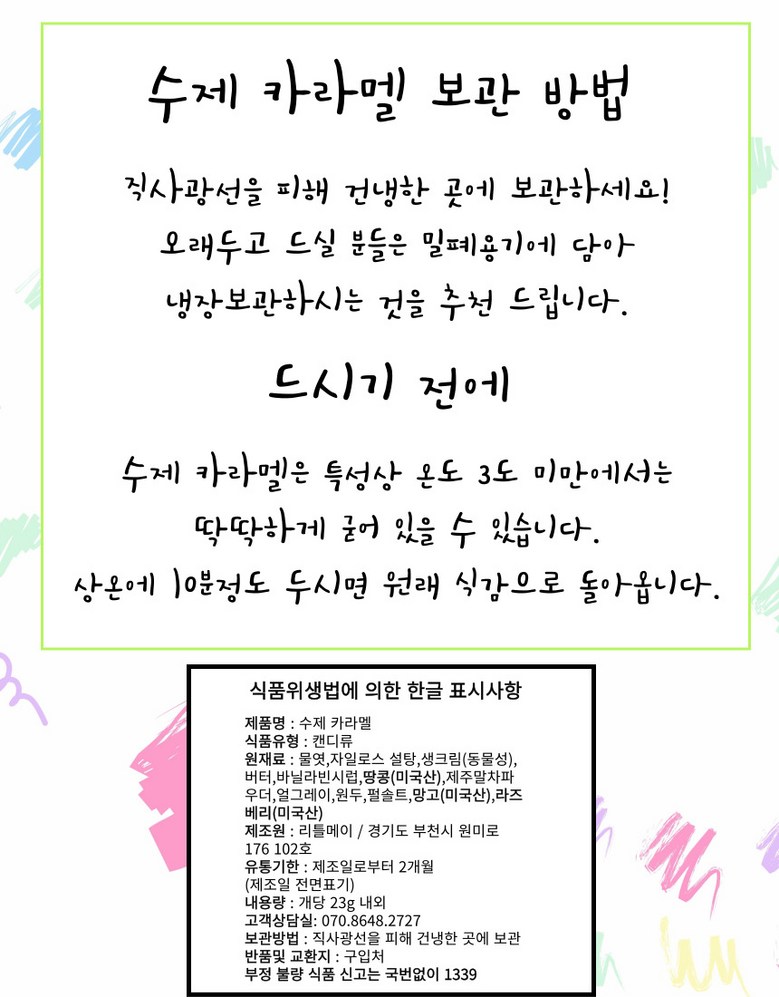 수제 카라멜 보관 방법
직사광선을 피해 건냉한 곳에 보관하세요!
오래두고 드실 분들은 밀폐용기에 담아
냉장보관하시는 것을 추천 드립니다.
드시기 전에
수제 카라멜은 특성상 온도 3도 미만에서는
딱딱하게 굳어 있을 수 있습니다.
상온에 10분정도 두시면 원래 식감으로 돌아옵니다.
식품위생법에 의한 한글 표시사항
제품명 : 수제 카라멜
식품유형 : 캔디류
원재료 : 물엿,자일로스 설탕,생크림(동물성),
버터,바닐라빈시럽,땅콩(미국산),제주말차파
우더,얼그레이,원두,펄솔트,망고(미국산),라즈
베리(미국산)
제조원 : 리틀메이 / 경기도 부천시 원미로
176 102호
유통기한 : 제조일로부터 2개월
(제조일 전면표기)
내용량 : 개당 23g 내외
고객상담실: 070.8648.2727
보관방법 : 직사광선을 피해 건냉한 곳에 보관
반품및 교환지 : 구입처
부정 불량 식품 신고는 국번없이 1339